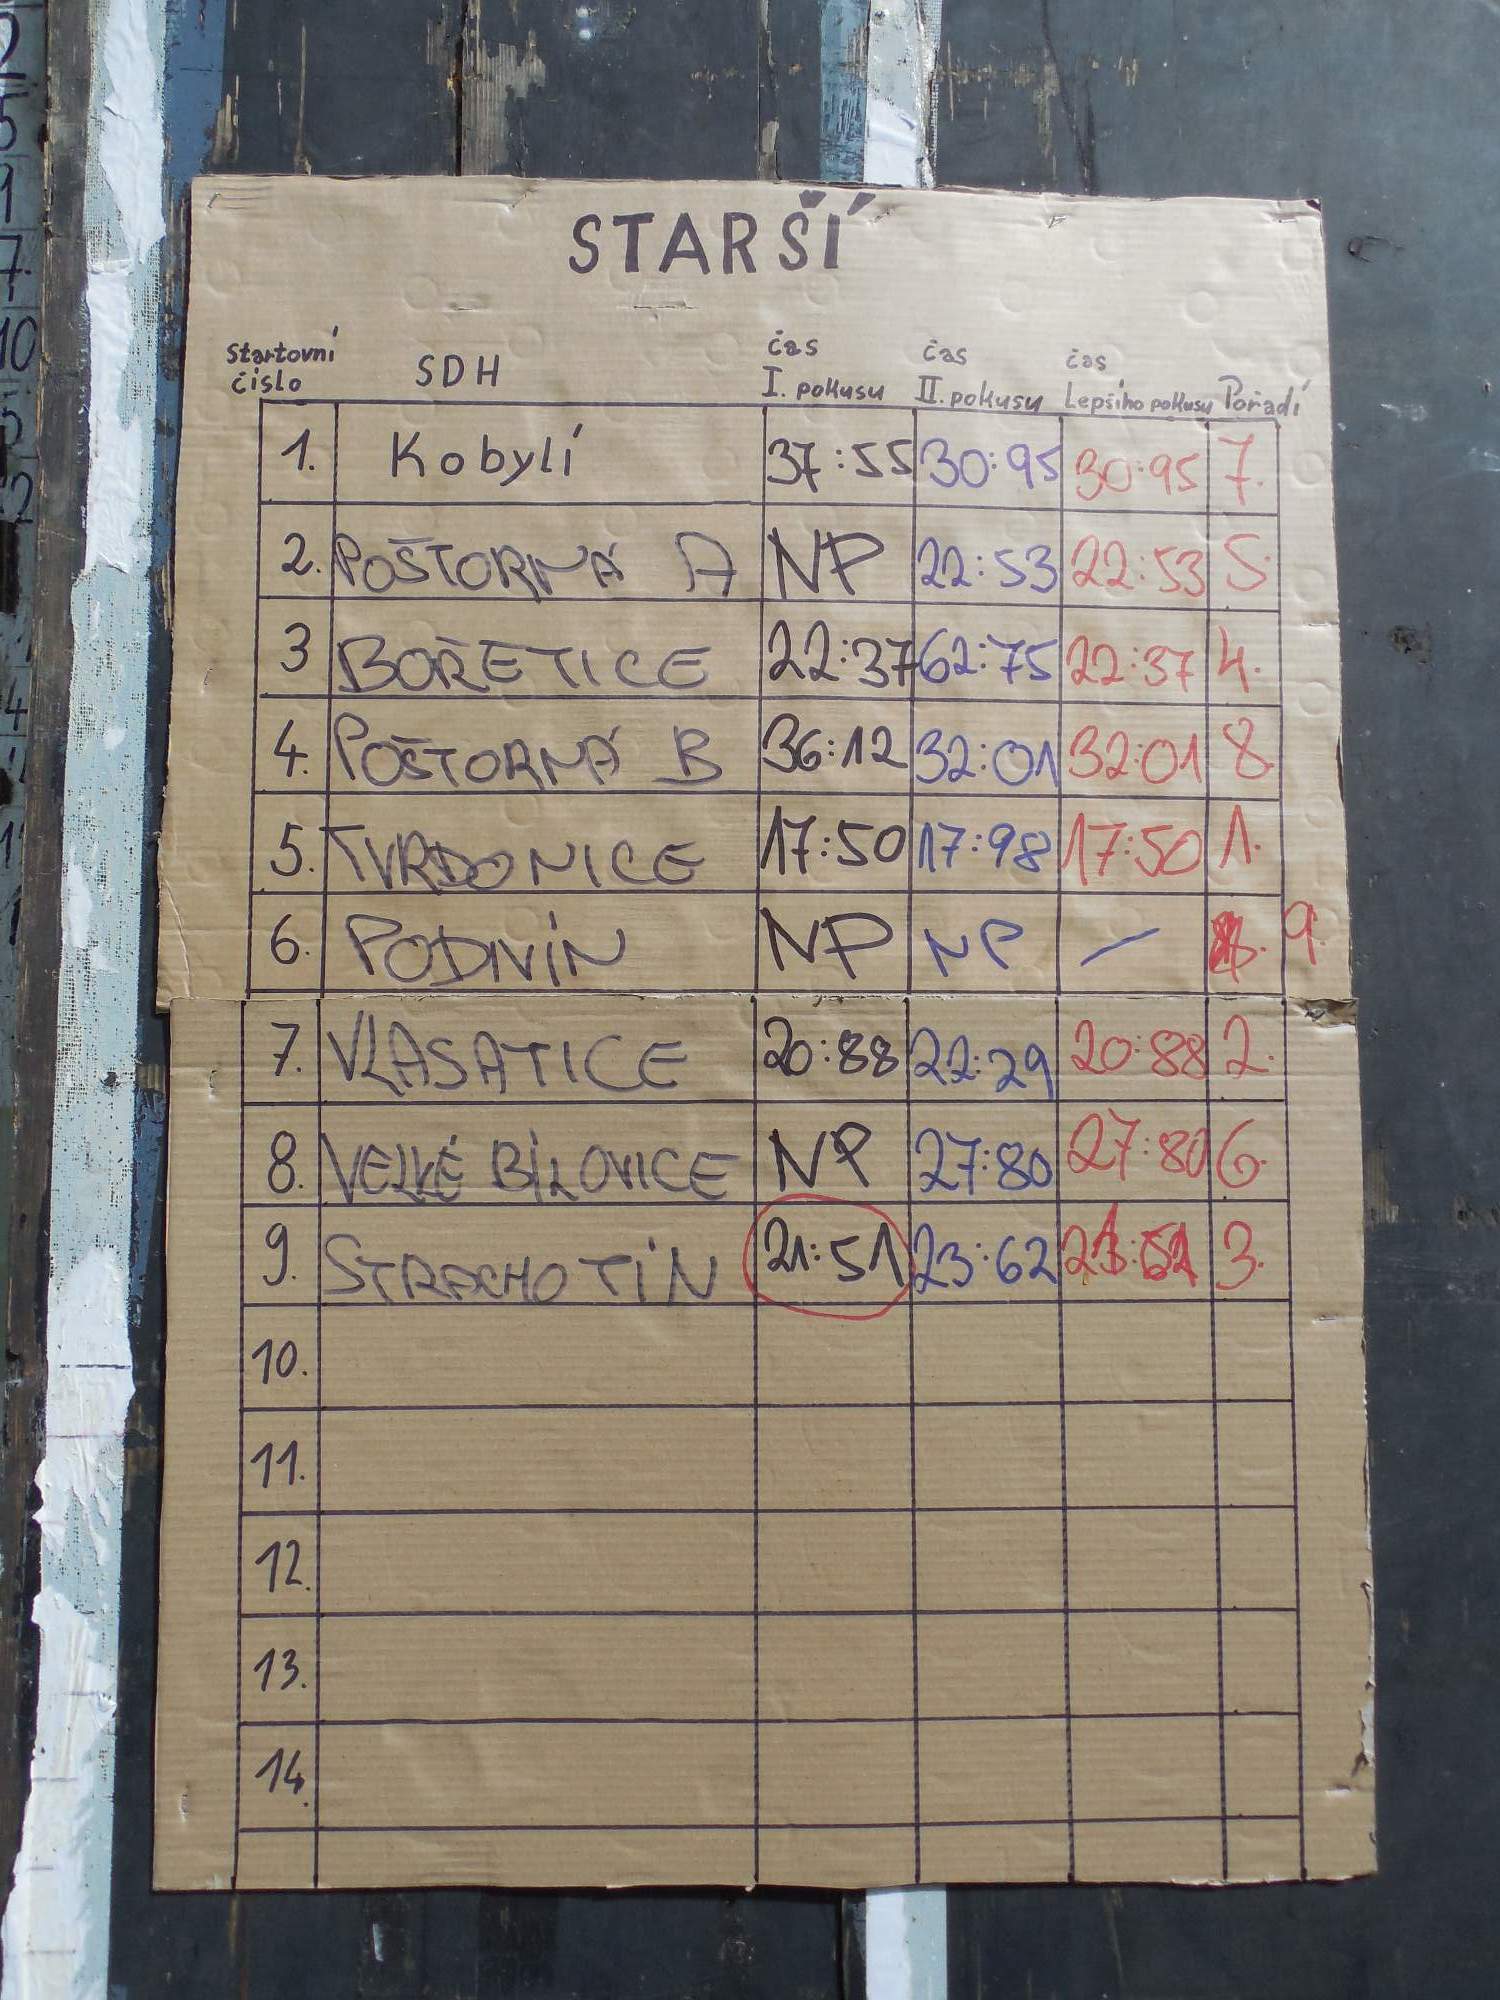 STARŠÍ
Startovní číslo SDH čas I. pokusu čas II. pokusu čas Lepšího pokusu Pořadí
1. Kobylí 37:55 30:95 30:95 7.
2. POŠTORNÁ A NP 22:53 22:53 5.
3 BOŘETICE 22:37 62:75 22:37 4.
4. POŠTORNÁ B 36:12 32:01 32:01 8.
5. TVRDONICE 17:50 17:98 17:50 1.
6. PODIVÍN NP NP – 9.
7. VLASATICE 20:88 22:29 20:88 2.
8. VELKÉ BÍLOVICE NP 27:80 27:80 6.
9. STRACHOTÍN 21:51 23:62 21:51 3.
10.
11.
12.
13.
14.